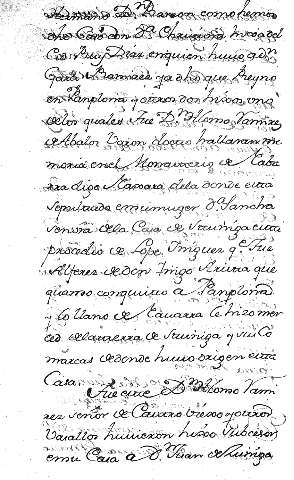 Ramiro Dn Ramon como hemos
casó con Da Christina hija del
Cid Ruy Diaz en quien huuo a dn
Garcia Ramirez ya dho que Reyno
en Panplona y otros dos hijos, uno
de los quales fue Dn Alonso Ramirez
de Abalos Varon de cuio hallaran me
moria en el Monasterio de
digo de la donde esta
sepultado e su muger Da Sancha
Señora de la Casa de Stuñiga esta
procedio de Lope Iñiguez qe fue
Alferez de Don Iñigo Arista que
quando conquisto a Panplona
y lo llano de Nauarra le hizo mer
ced de la tierra de Stuñiga y sus Co
marcas de donde huuo origen esta
Casa.
Fue este Dn Alonso Rami
rez señor de y otros
Vasallos huuieron hijos subcesor
en su Casa a Dn Juan de Zuñiga